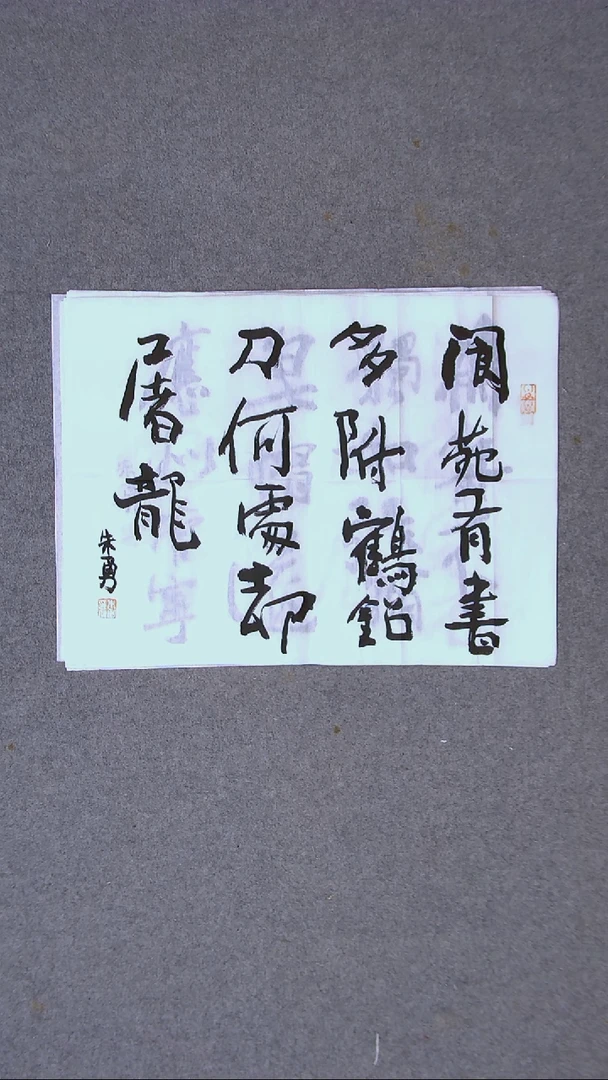 閬苑有書
多附鶴鉛
刀何處却
屠龍
朱勇